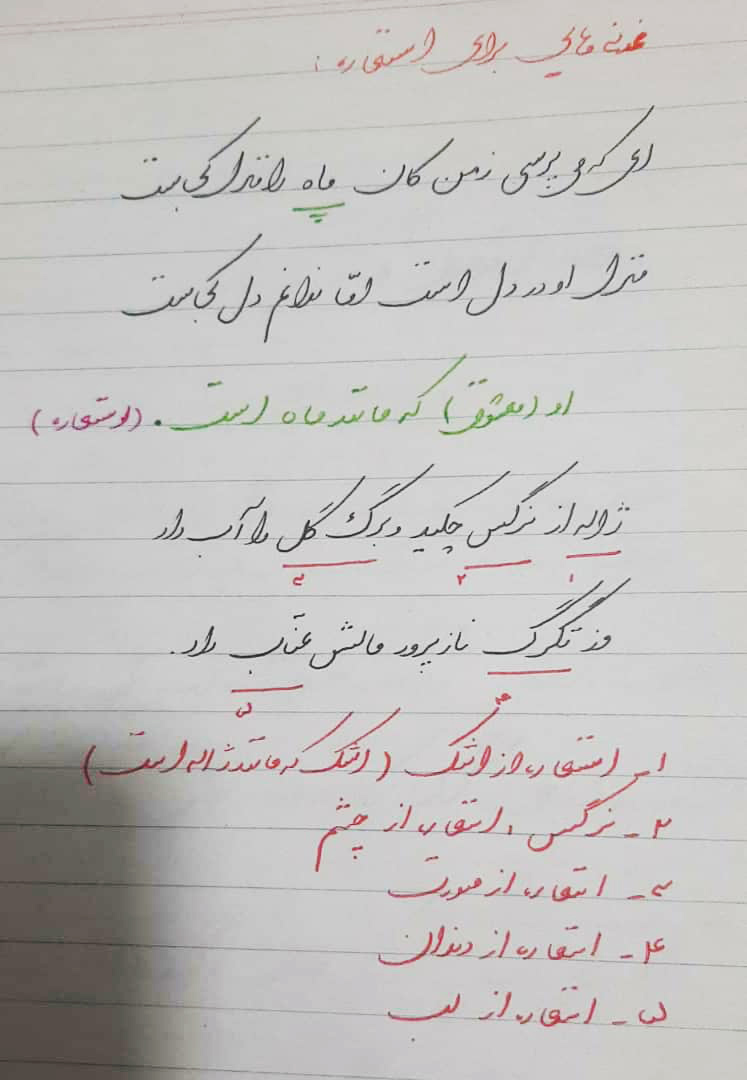 نمونه هایی برای استعاره:
ای که می پرسی ز من کان ماه را منزل کجاست
منزل او در دل است امّا ندانم دل کجاست
او (معشوق) که مانند ماه است. (استعاره)
ژاله از نرگس چکید و برگ گل را آب داد
۱ ۲ ۳
وز تگرگ نازپرور مالش عنّاب داد.
۴ ۵
۱- استعاره از اشک (اشک که مانند ژاله است)
۲- نرگس، استعاره از چشم
۳- استعاره از صورت
۴- استعاره از دندان
۵- استعاره از لب